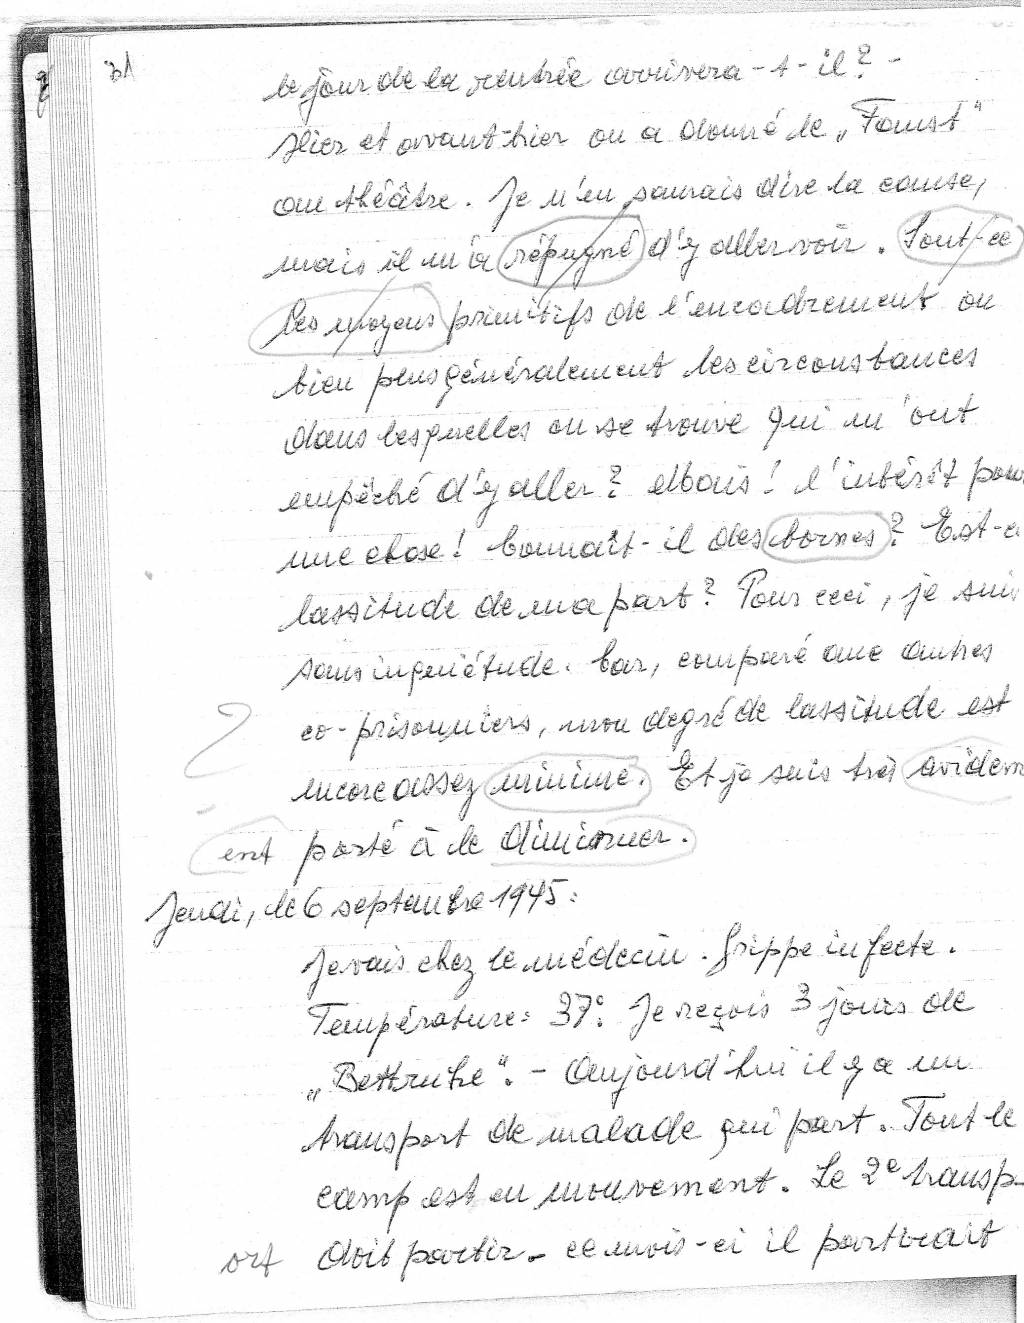 31
le jour de la rentrée arrivera-t-il? -
Hier et avant-hier on a donné le „Faust“
au théâtre. Je n'en saurais dire la cause,
mais il m'a répugné d'y aller voir. Sont-ce
les moyens primitifs de l'encadrement ou
bien plus généralement les circonstances
dans lesquelles on se trouve qui m'ont
empêché d'y aller? Mais! l'intérêt pour
une chose! Connaît-il des bornes? Est-c
lassitude de ma part? Pour ceci, je suis
sans inquiétude. Car, comparé aux autres
co-prisonniers, mon degré de lassitude est
encore assez minime. Et je suis très avidem
ent porté à le diminuer.
Jeudi, le 6 septembre 1945:
Je vais chez le médecin. Grippe infecte.
Température: 37°. Je reçois 3 jours de
„Bettruhe“. - Aujourd'hui il y a un
transport de malade qui part. Tout le
camp est en mouvement. Le 2e transp-
ort doit partir - ce mois-ci il partirait